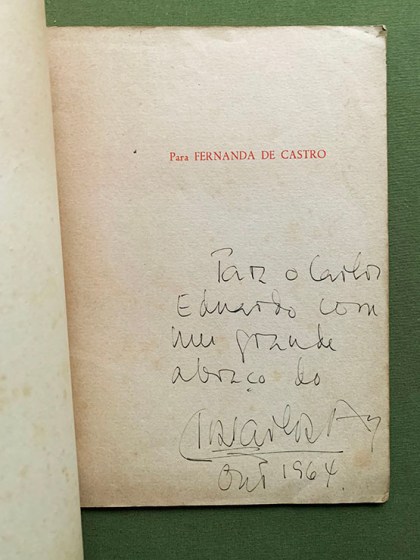 Para FERNANDA DE CASTRO
Para o Carlos
Eduardo com
um grande
abraço do
Out 1964.